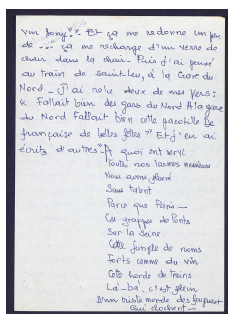 Et ça me redonne un peu
de --- ça me recharge d'un verre de
chair dans la chair. Puis j'ai pensé
au train de Saint-Leu, à la Gare du
Nord - J'ai relu deux de mes vers :
" Fallait bien des gars du Nord A la gare
du Nord Fallait bien cette pacotille De
française de belles filles " Et j'en ai
écrits d'autres - A quoi ont servi
Toutes nos larmes
Nous avons pleuré
Sans talent
Parce que Paris -
Ces grappes de Ponts
Sur la Seine.
Cette jungle de noms
Forts comme du vin
Cette horde de trains
Là-bà, c'est plein
D'un triste monde des
qui